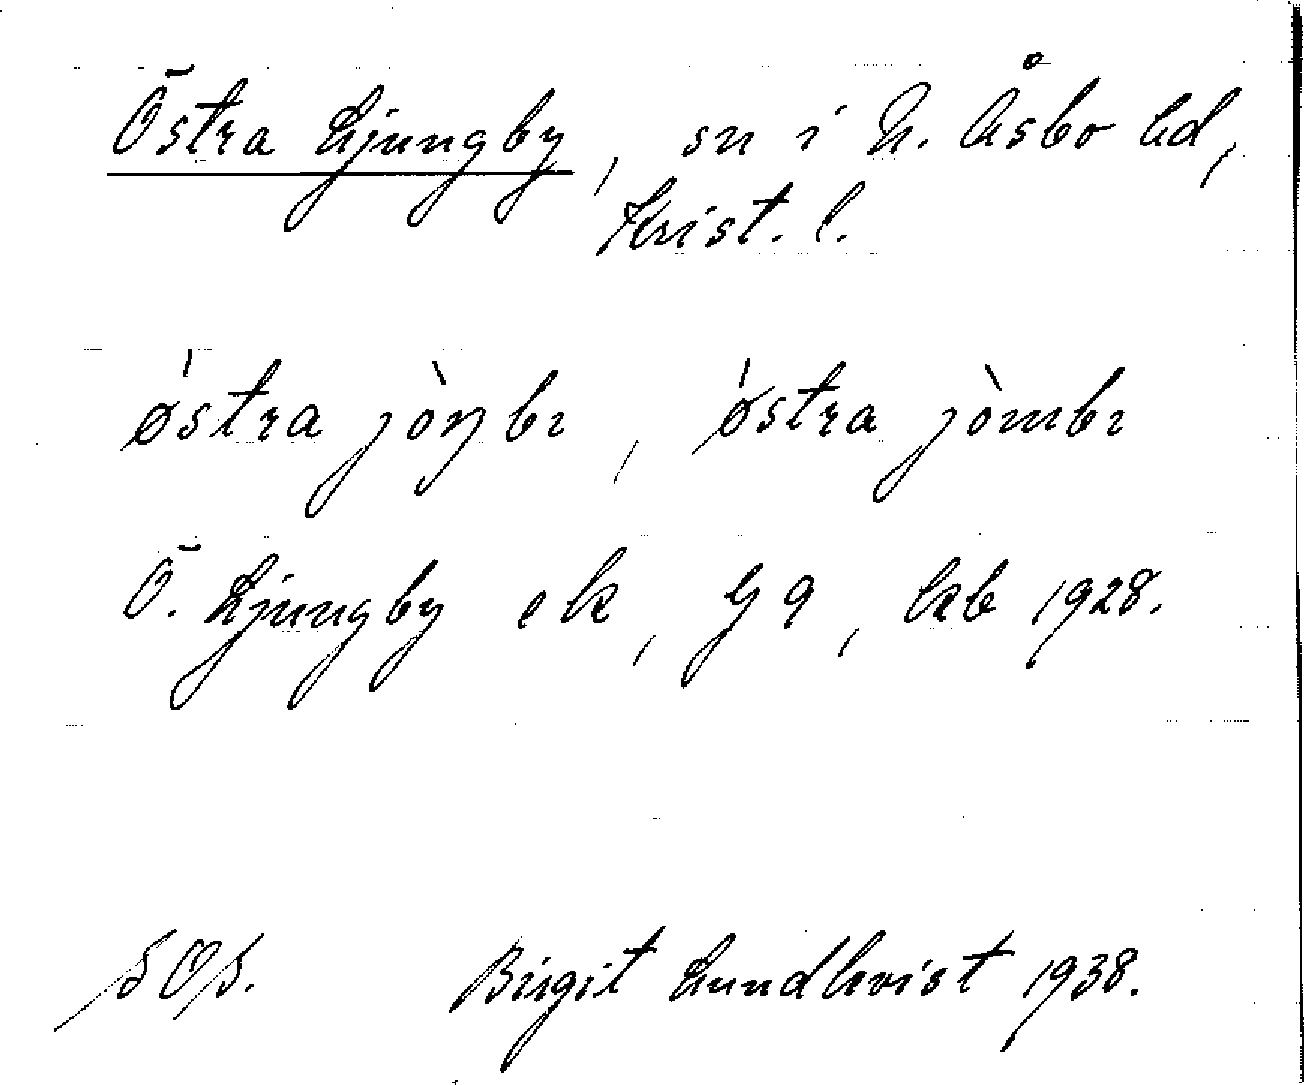 Östra Ljungby, sn i N. Åsbo hd,
Krist. l.
ǿstra jòŋbı, ǿstra jòmbı
Ö. Ljungby ek, G 9, kb 1928.
SOS. Birgit Lundkvist 1938.